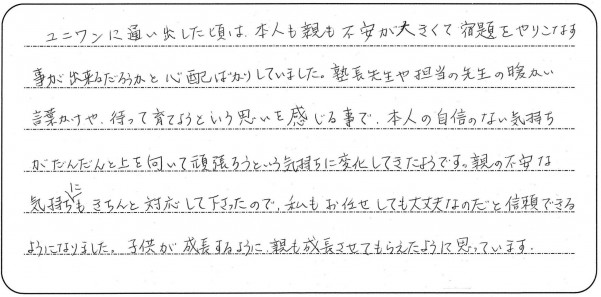 ユニワンに通い出した頃は、本人も親も不安が大きくて宿題をやりこなす
事が出来るだろうかと心配ばかりしていました。塾長先生や担当の先生の暖かい
言葉かけや、待って育てようという思いを感じる事で、本人の自信のない気持ち
がだんだんと上を向いて頑張ろうという気持ちに変化してきたようです。親の不安な
気持ちにもきちんと対応して下さったので、私もお任せしても大丈夫なのだと信頼できる
ようになりました。子供が成長するように、親も成長させてもらえたように思っています。